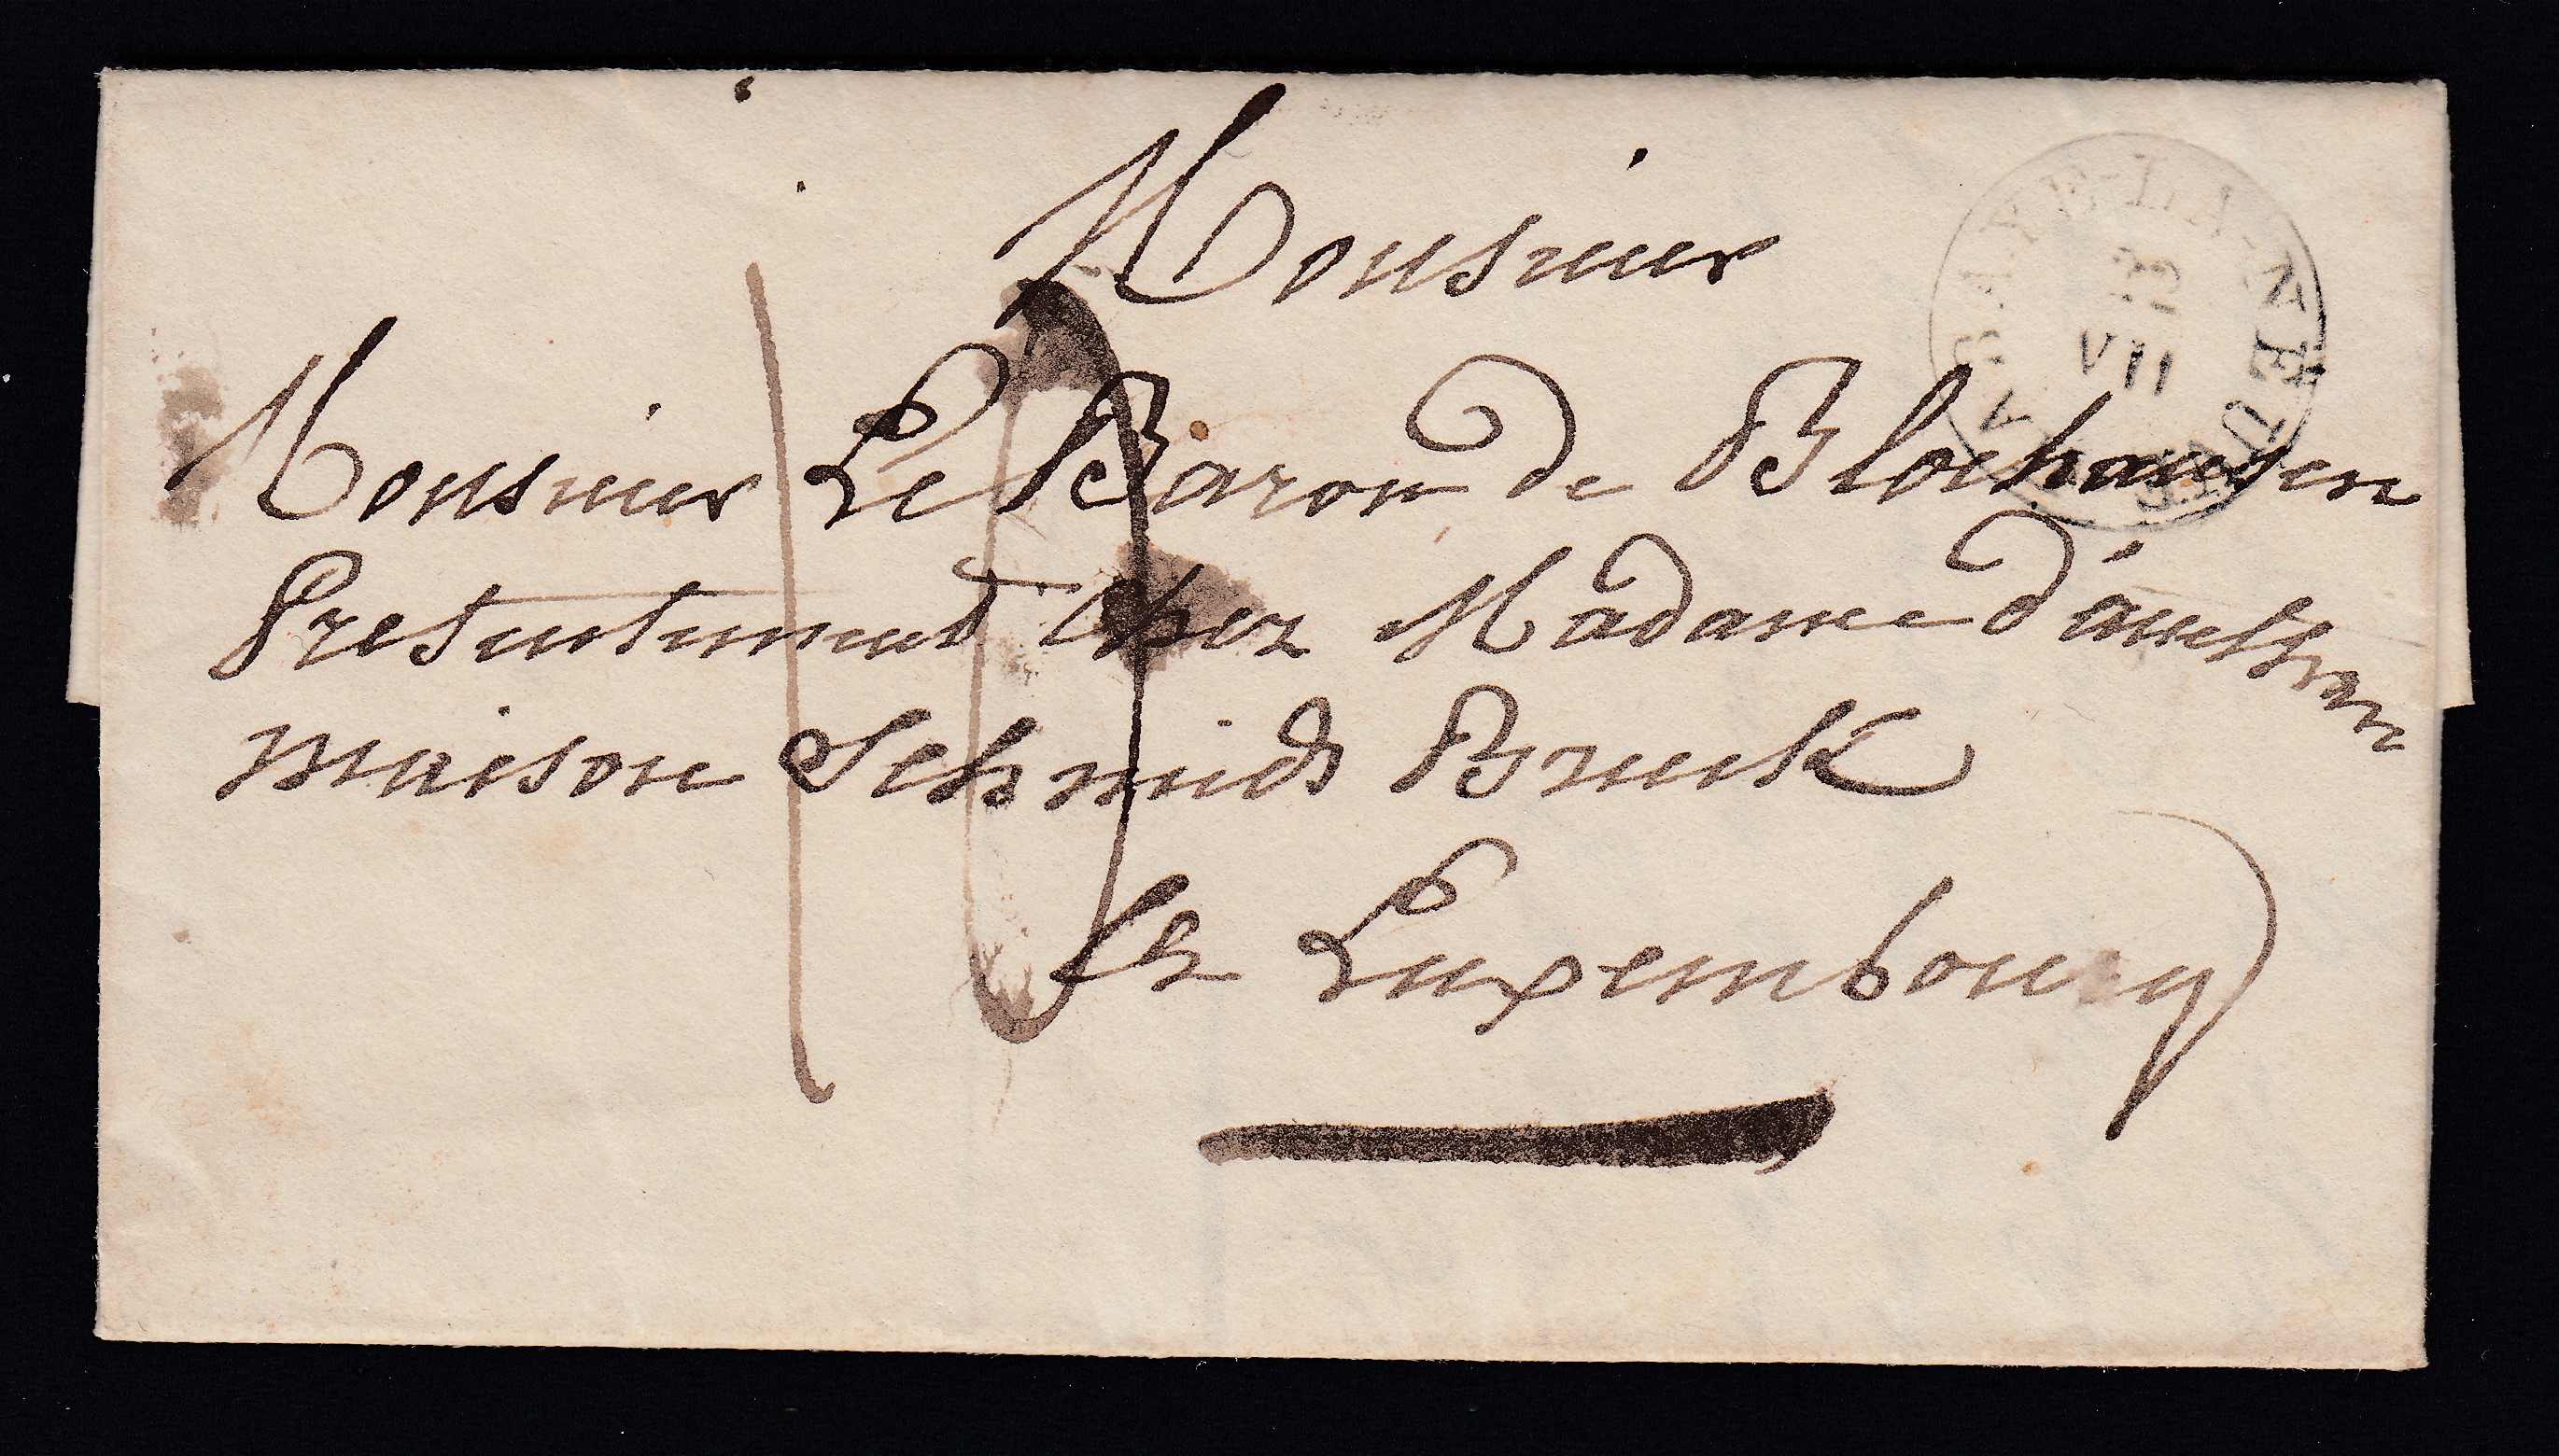 Monsieur
Monsieur Le Baron de Blochausen
Presentement chez Madame d'anethan
maison Schmids Bruck
Luxembourg
10
VII